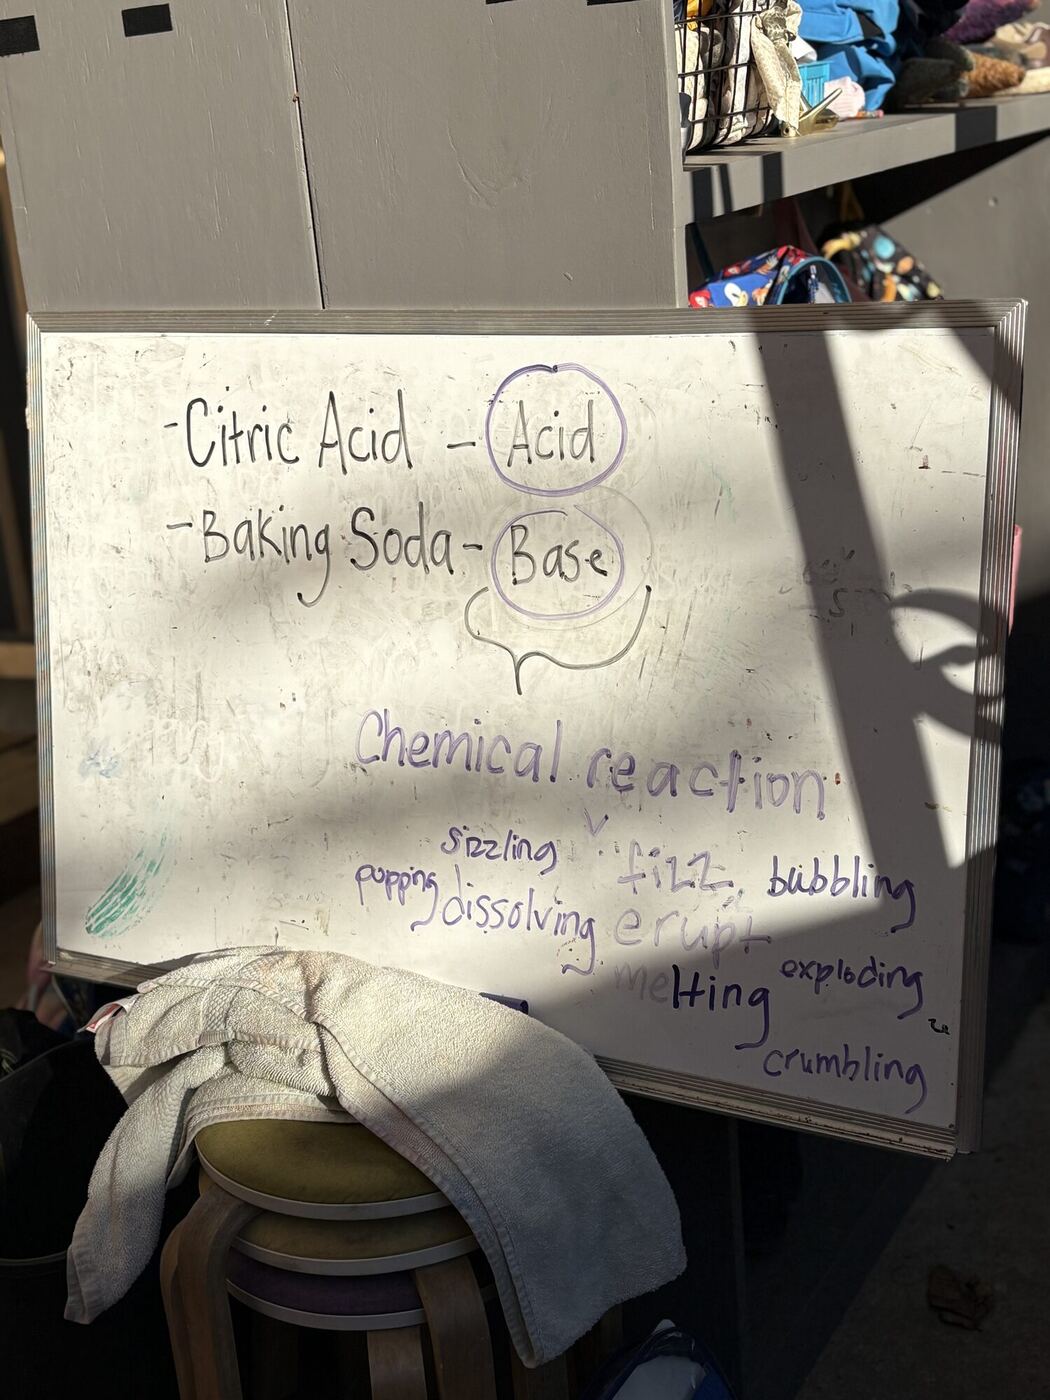 -Citric Acid - Acid
-Baking Soda - Base
Chemical reaction
sizzling fizz bubbling
popping dissolving erupt
melting exploding
crumbling